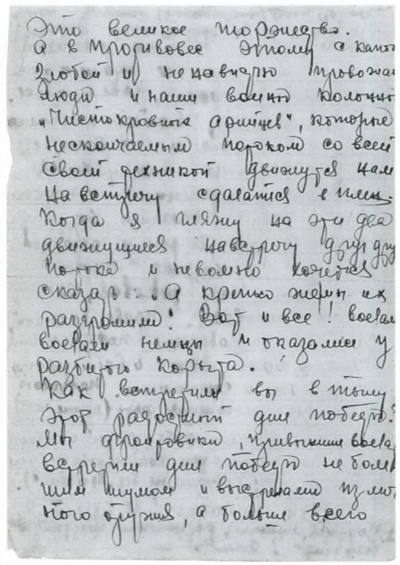 Это великое торжество.
А в противовес этому с какой
злобой и ненавистю провожаю
люди и наши воины колонны
"Чистокровных арийцев", которые
нескончаемым потоком со всей
своей техникой движутся нам
навстречу сдаватся в плен.
Когда я гляжу на эти два
движущиеся навстречу друг дру
потока и невольно хочется
сказать: "А крепко же мы их
разгромили! Вот и все! воевали
воевали немцы и оказались у
разбитого корыта.
Как встретили вы в тылу
этот радостный день победы?
Мы фронтовики, привыкшие воева
встретили день победы не боль
шим шумом и выстрелами из лич
ного оружия, а больше всего